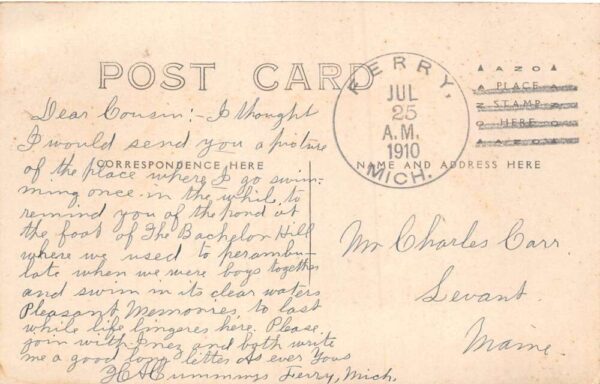 POST CARD
FERRY,
JUL
25
A.M.
1910
MICH.
AZO
PLACE
STAMP
HERE
AZO
CORRESPONDENCE HERE
NAME AND ADDRESS HERE
Dear Cousin:- I thought
I would send you a picture
of the place where I go swim-
ming once in the while to
remind you of the pond at
the foot of The Bachelor Hill
where we used to perambu-
late when we were boys together
and swim in its clear waters
Pleasant Memories to last
while life lingeres here. Please
join with Inez and both write
me a good long letter As ever Yours
Cummings Ferry, Mich.
Mr Charles Carr.
Levant.
Maine